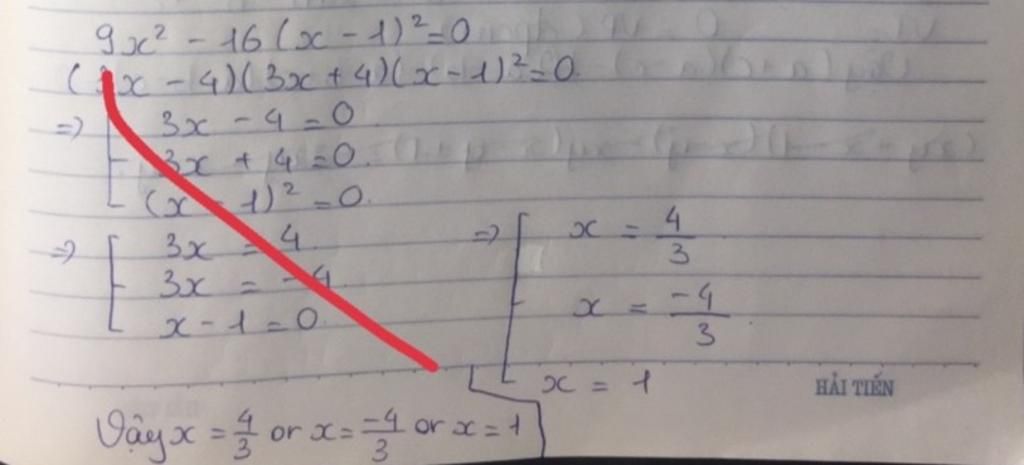 9x² - 16(x - 1)² = 0
(3x - 4)(3x + 4)(x - 1)² = 0
=> [ 3x - 4 = 0
3x + 4 = 0
(x - 1)² = 0
=> [ 3x = 4
3x = -4
x - 1 = 0
=> [ x = 4/3
x = -4/3
x = 1
HẢI TIẾN
Vậy x = 4/3 or x = -4/3 or x = 1